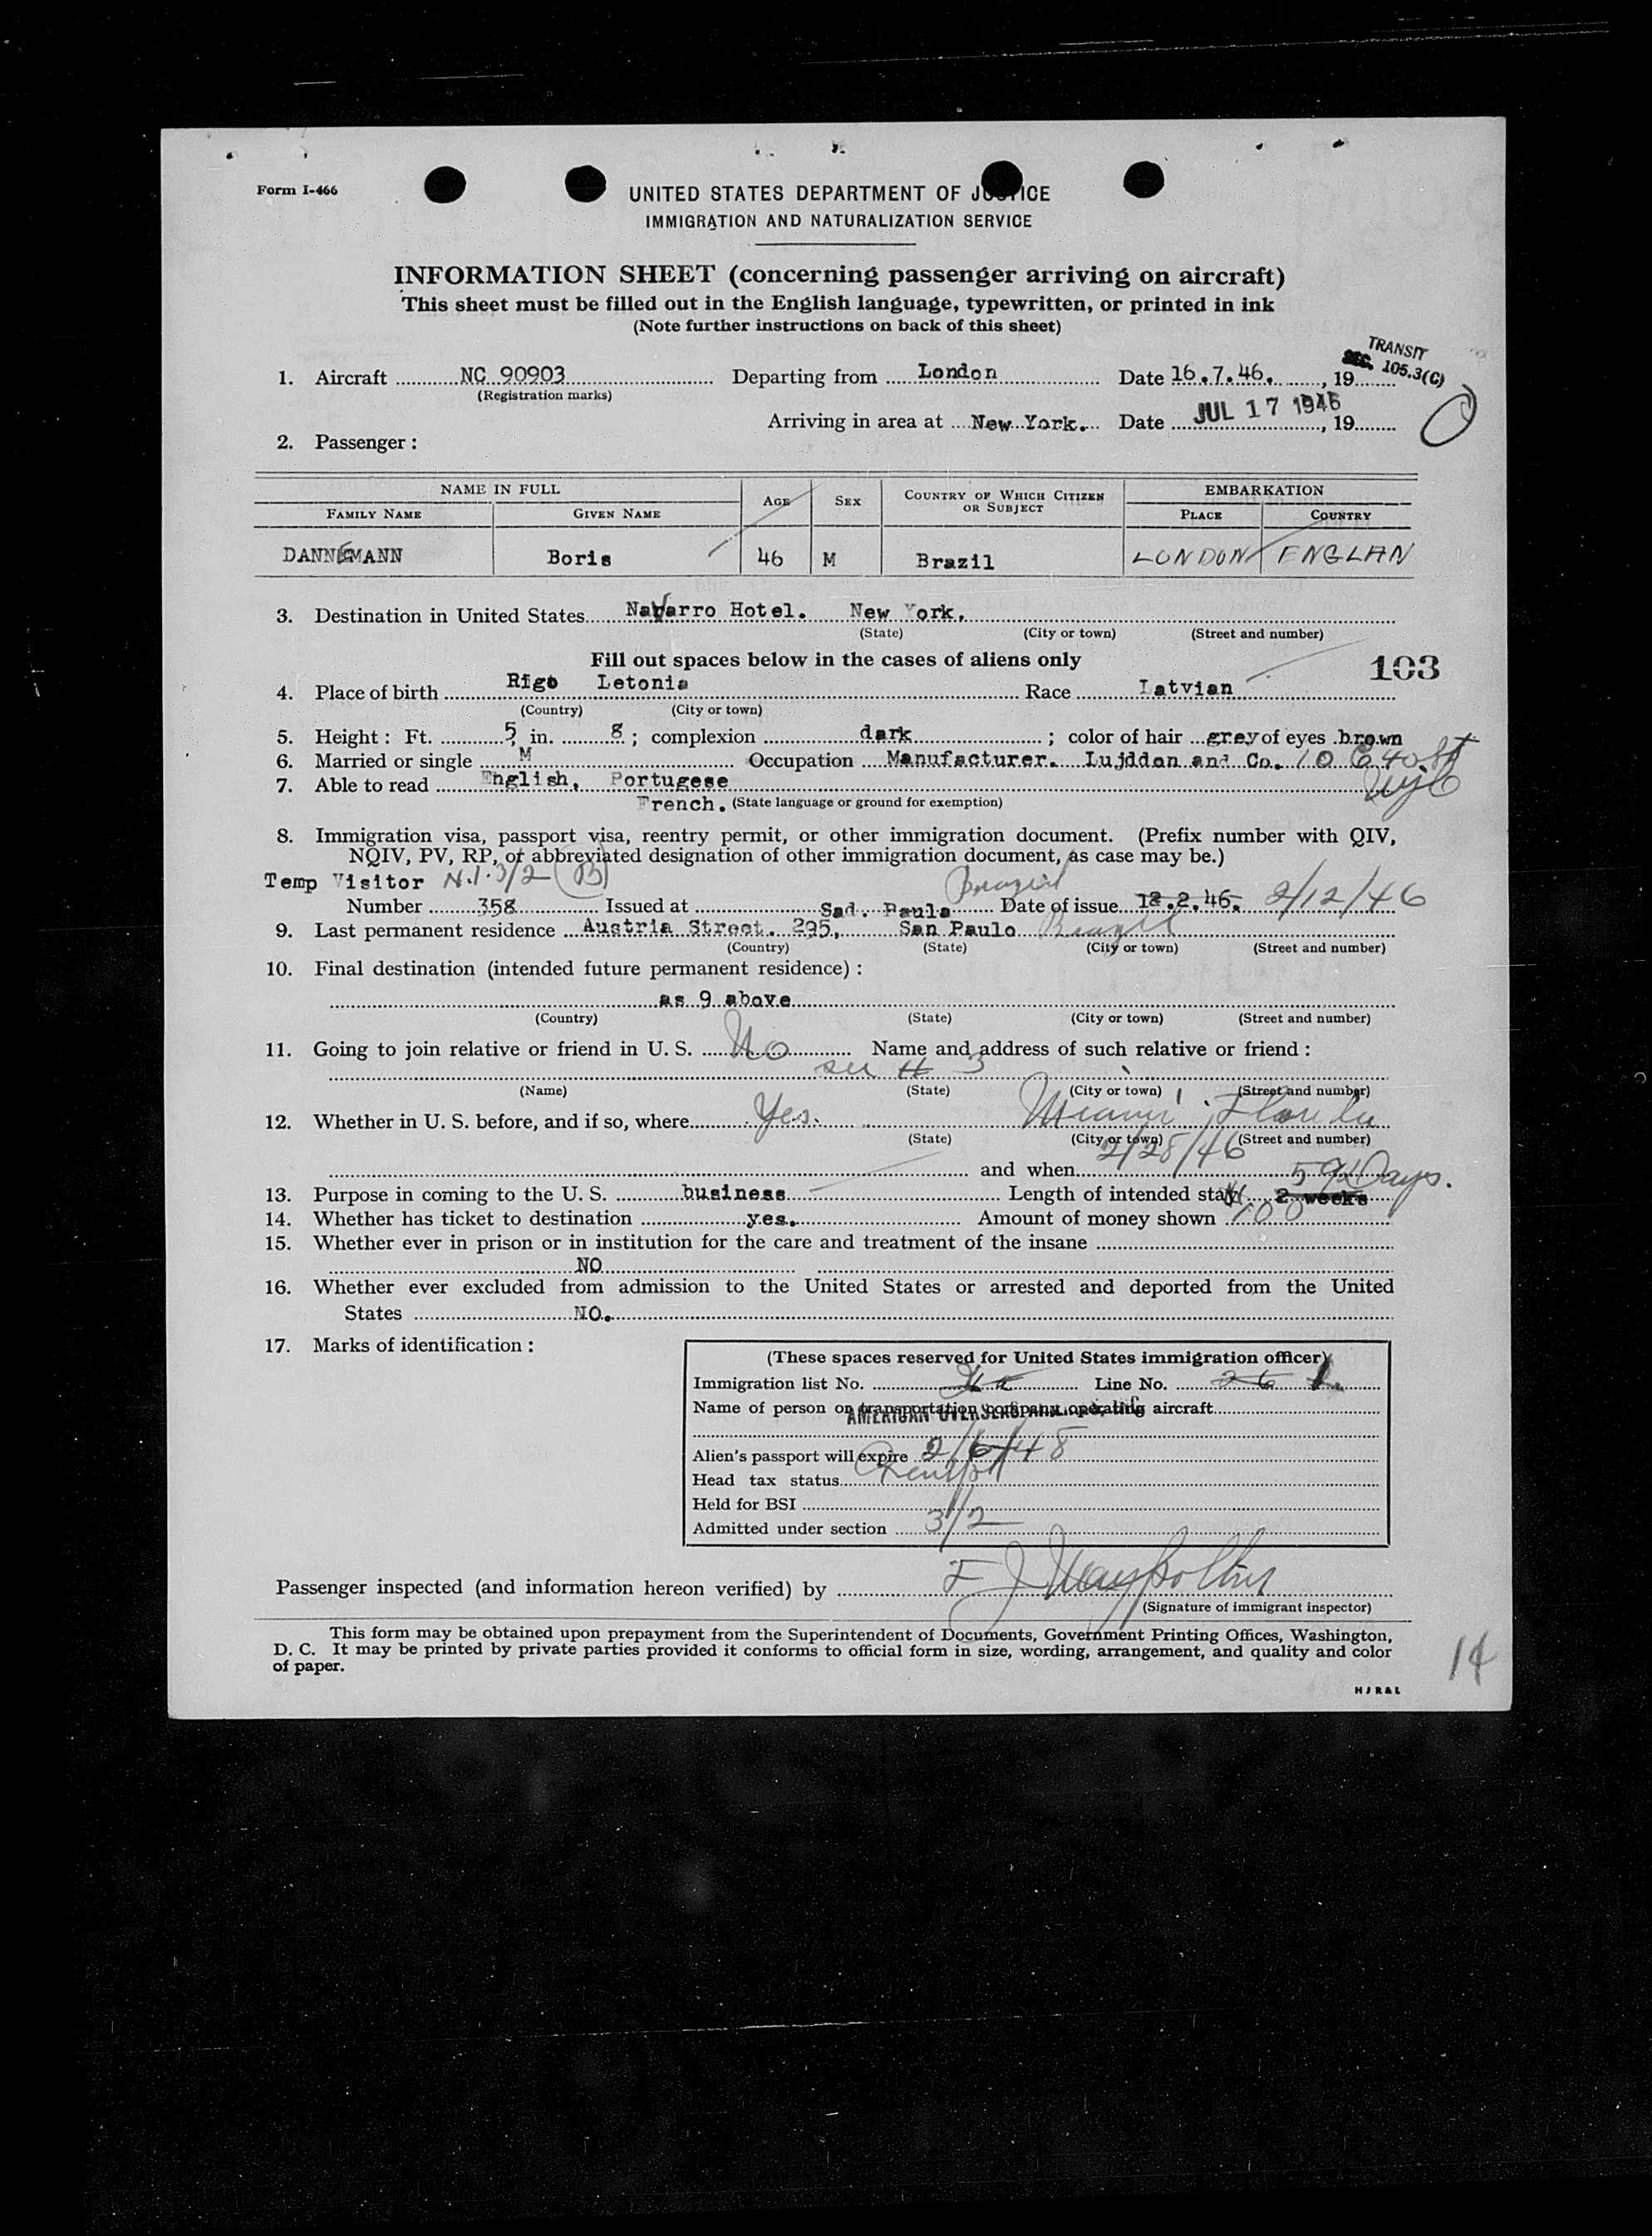 Form I-466
UNITED STATES DEPARTMENT OF JUSTICE
IMMIGRATION AND NATURALIZATION SERVICE
INFORMATION SHEET (concerning passenger arriving on aircraft)
This sheet must be filled out in the English language, typewritten, or printed in ink
(Note further instructions on back of this sheet)
TRANSIT
SEC. 105.3(C)
1. Aircraft NC 90903 Departing from London Date 16.7.46. , 19
(Registration marks)
Arriving in area at New York. Date JUL 17 1946 , 19
2. Passenger :
NAME IN FULL AGE SEX COUNTRY OF WHICH CITIZEN OR SUBJECT EMBARKATION
FAMILY NAME GIVEN NAME PLACE COUNTRY
DANNEMANN Boris 46 M Brazil LONDON ENGLAN
3. Destination in United States Navarro Hotel. New York.
(State) (City or town) (Street and number)
Fill out spaces below in the cases of aliens only
103
4. Place of birth Rigo Letonia Race Latvian
(Country) (City or town)
5. Height : Ft. 5, in. 8 ; complexion dark ; color of hair grey of eyes brown
6. Married or single M Occupation Manufacturer. Lujddon and Co. 10 E 40 St
7. Able to read English, Portugese NYC
French. (State language or ground for exemption)
8. Immigration visa, passport visa, reentry permit, or other immigration document. (Prefix number with QIV,
NQIV, PV, RP, or abbreviated designation of other immigration document, as case may be.)
Temp Visitor N.I. 3/2 (B) Brazil
Number 358 Issued at Sad. Paula Date of issue 12.2.46. 2/12/46
9. Last permanent residence Austria Street. 295, San Paulo Brazil
(Country) (State) (City or town) (Street and number)
10. Final destination (intended future permanent residence) :
as 9 above
(Country) (State) (City or town) (Street and number)
11. Going to join relative or friend in U. S. No Name and address of such relative or friend :
see # 3
(Name) (State) (City or town) (Street and number)
12. Whether in U. S. before, and if so, where Yes. Miami, Florida
(State) (City or town) (Street and number)
and when 2/28/46
13. Purpose in coming to the U. S. business Length of intended stay 2 weeks Days.
14. Whether has ticket to destination yes. Amount of money shown 100
15. Whether ever in prison or in institution for the care and treatment of the insane
NO
16. Whether ever excluded from admission to the United States or arrested and deported from the United
States NO.
17. Marks of identification :
(These spaces reserved for United States immigration officer)
Immigration list No. Line No. 26 1.
Name of person on transportation company operating aircraft
AMERICAN OVERSEAS
Alien's passport will expire 2/6/48
Head tax status
Held for BSI
Admitted under section 3/2
Passenger inspected (and information hereon verified) by
(Signature of immigrant inspector)
This form may be obtained upon prepayment from the Superintendent of Documents, Government Printing Offices, Washington,
D. C. It may be printed by private parties provided it conforms to official form in size, wording, arrangement, and quality and color
of paper.
14
HJR&L